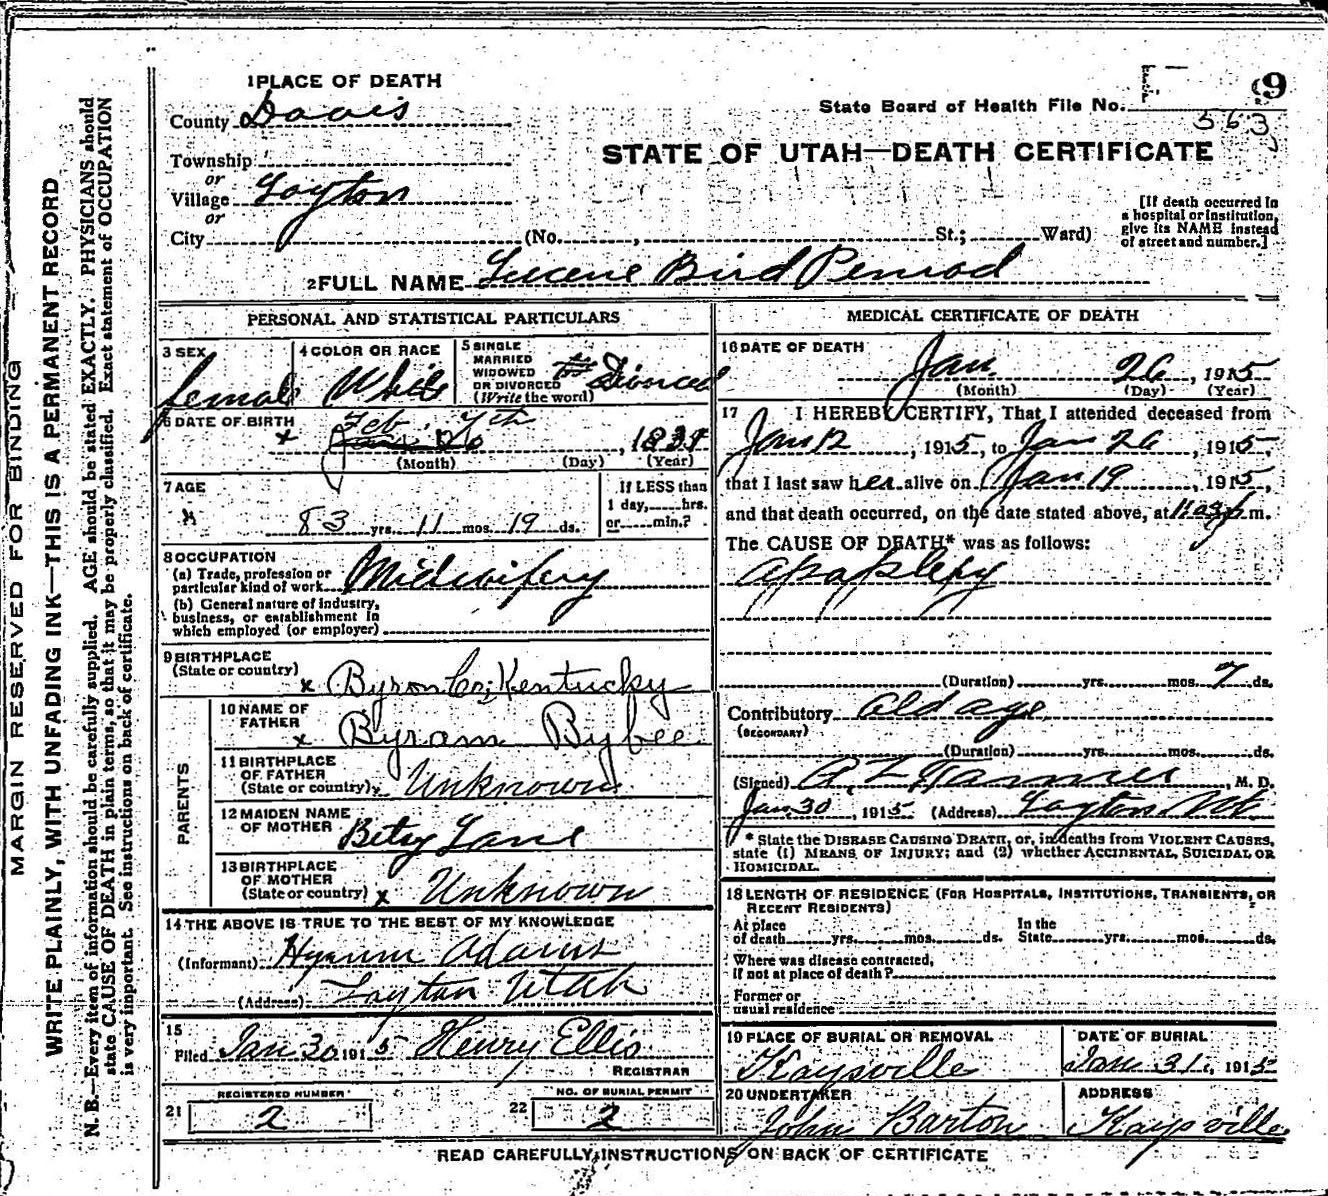 MARGIN RESERVED FOR BINDING
WRITE PLAINLY, WITH UNFADING INK—THIS IS A PERMANENT RECORD
N. B.—Every item of information should be carefully supplied. AGE should be stated EXACTLY. PHYSICIANS should
state CAUSE OF DEATH in plain terms, so that it may be properly classified. Exact statement of OCCUPATION
is very important. See instructions on back of certificate.
1 PLACE OF DEATH
County Davis
State Board of Health File No. 9
563
STATE OF UTAH—DEATH CERTIFICATE
Township
or
Village Layton
or
City (No. , St.; Ward)
[If death occurred in
a hospital or institution,
give its NAME instead
of street and number.]
2 FULL NAME Lucene Bird Penrod
PERSONAL AND STATISTICAL PARTICULARS
3 SEX
female
4 COLOR OR RACE
White
5 SINGLE
MARRIED
WIDOWED
OR DIVORCED
(Write the word)
Divorced
6 DATE OF BIRTH
x Feb 7th , 183
(Month) (Day) (Year)
7 AGE
83 yrs. 11 mos. 19 ds.
If LESS than
1 day, hrs.
or min.?
8 OCCUPATION
(a) Trade, profession or
particular kind of work Midwifery
(b) General nature of industry,
business, or establishment in
which employed (or employer)
9 BIRTHPLACE
(State or country)
x Byron Co; Kentucky
PARENTS
10 NAME OF
FATHER
x Byram Bybee
11 BIRTHPLACE
OF FATHER
(State or country) x Unknown
12 MAIDEN NAME
OF MOTHER Betsy Lane
13 BIRTHPLACE
OF MOTHER
(State or country) x Unknown
14 THE ABOVE IS TRUE TO THE BEST OF MY KNOWLEDGE
(Informant) Hyrum Adams
(Address) Layton Utah
15
Filed Jan 30 1915 Henry Ellis
REGISTRAR
21 REGISTERED NUMBER
2
22 NO. OF BURIAL PERMIT
2
MEDICAL CERTIFICATE OF DEATH
16 DATE OF DEATH
Jan. 26 , 1915
(Month) (Day) (Year)
17 I HEREBY CERTIFY, That I attended deceased from
Jan 12 , 1915, to Jan 26 , 1915,
that I last saw her alive on Jan 19 , 1915,
and that death occurred, on the date stated above, at p.m.
The CAUSE OF DEATH* was as follows:
Apoplexy
(Duration) yrs. mos. 7 ds.
Contributory Old age
(SECONDARY)
(Duration) yrs. mos. ds.
(Signed) A Z Tanner , M. D.
Jan 30 , 1915 (Address) Layton Ut.
* State the DISEASE CAUSING DEATH, or, in deaths from VIOLENT CAUSES,
state (1) MEANS OF INJURY; and (2) whether ACCIDENTAL, SUICIDAL OR
HOMICIDAL.
18 LENGTH OF RESIDENCE (FOR HOSPITALS, INSTITUTIONS, TRANSIENTS, OR
RECENT RESIDENTS)
At place
of death yrs. mos. ds. In the
State yrs. mos. ds.
Where was disease contracted,
if not at place of death?
Former or
usual residence
19 PLACE OF BURIAL OR REMOVAL
Kaysville
DATE OF BURIAL
Jan 31, 1915
20 UNDERTAKER
John Barton
ADDRESS
Kaysville
READ CAREFULLY INSTRUCTIONS ON BACK OF CERTIFICATE